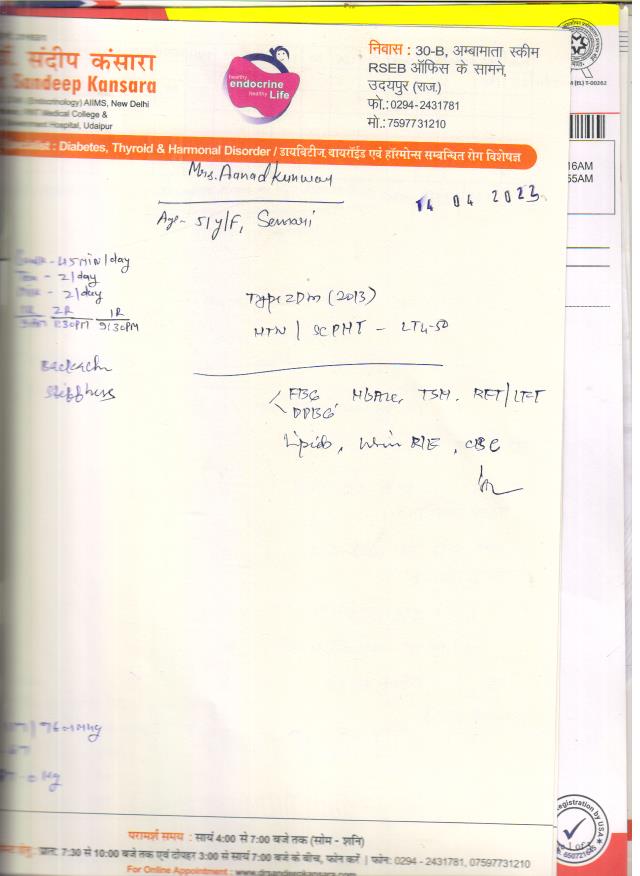 डॉ. संदीप कंसारा
Sandeep Kansara
(Endocrinology) AIIMS, New Delhi
Medical College &
Hospital, Udaipur
healthy
endocrine
healthy Life
निवास : 30-B, अम्बामाता स्कीम
RSEB ऑफिस के सामने,
उदयपुर (राज.)
फो.: 0294-2431781
मो.: 7597731210
Diabetes, Thyroid & Harmonal Disorder / डायबिटीज, थायरॉईड एवं हॉरमोन्स सम्बन्धित रोग विशेषज्ञ
16AM
55AM
Mrs. Aanad Kunwar
14 04 2023
Age- 51y/F, Semari
45 MIN/day
- 2/day
- 2/day
1R 2R 1R
9:30PM
Type 2 DM (2013)
HTN / SCPHT - LT4-50
Backache
Stiffness
FBG, HbA1c, TSH, RFT/LFT
PPBG
Lipids, Urine R/E, CBC
96 mmHg
परामर्श समय : सायं 4:00 से 7:00 बजे तक (सोम - शनि)
हेतु : प्रात: 7:30 से 10:00 बजे तक एवं दोपहर 3:00 से सायं 7:00 बजे के बीच, फोन करें | फोन: 0294 - 2431781, 07597731210
For Online Appointment : www.drsandeepkansara.com